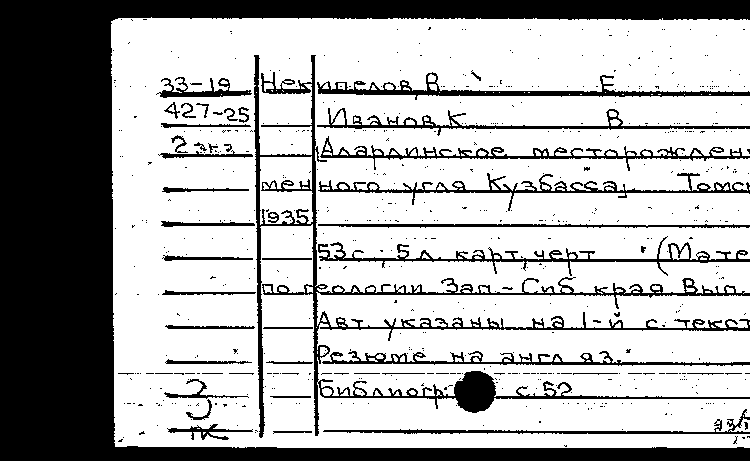 33-19 Некипелов, В. Е
427-25 Иванов, К В
2 экз Алардинское месторожден
менного угля Кузбасса, Томс
1935
53с, 5л. карт, черт (Мате
по геологии Зап-Сиб края Вып.
Авт. указаны на 1-й с. текс
Резюме на англ яз.
Библиогр: с. 52